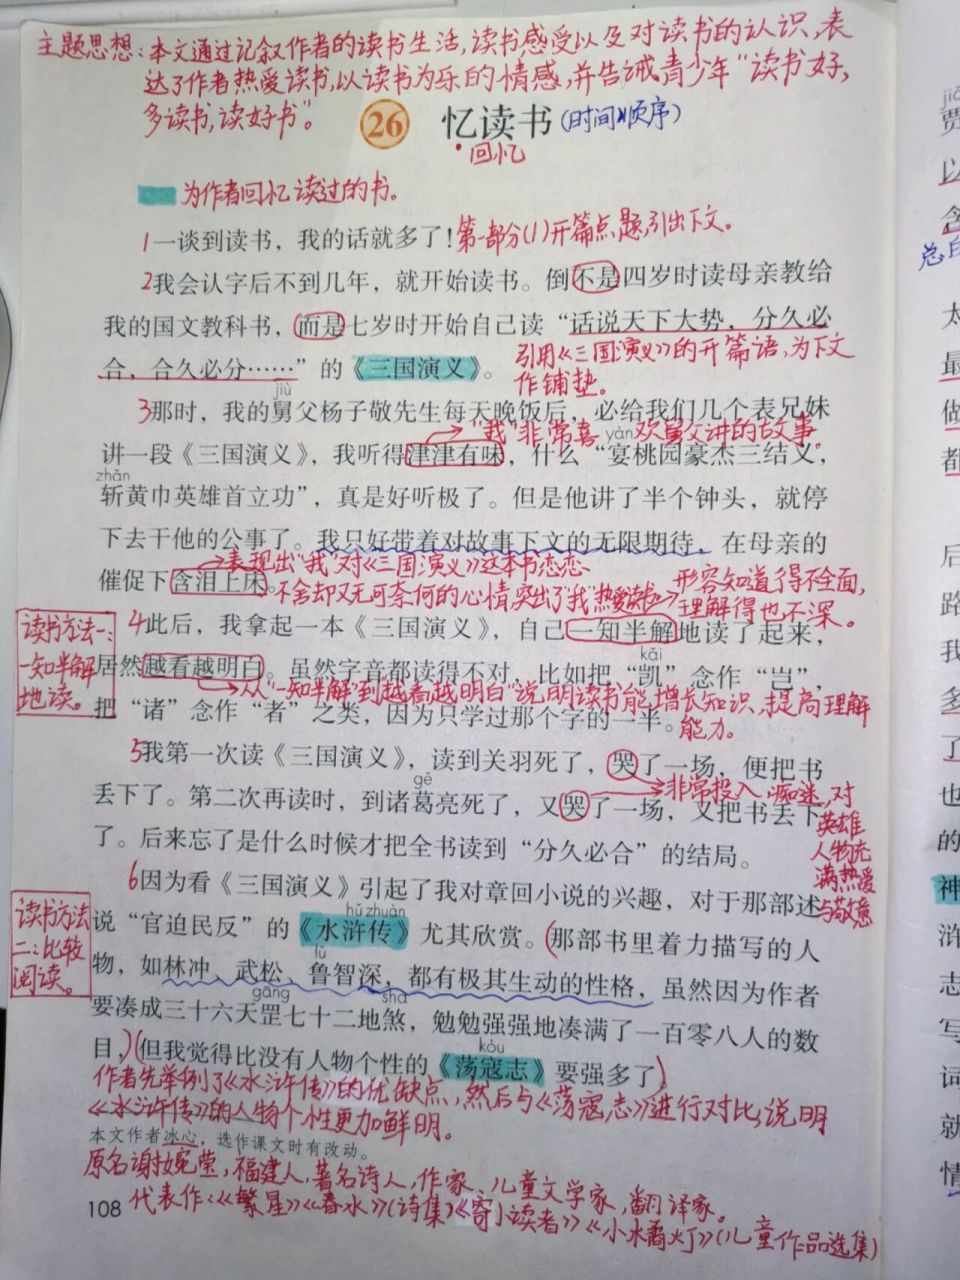 主题思想:本文通过记叙作者的读书生活,读书感受以及对读书的认识,表
达了作者热爱读书,以读书为乐的情感,并告诫青少年“读书好,
多读书,读好书”。
26 忆读书(时间顺序)
回忆
为作者回忆读过的书。
1一谈到读书,我的话就多了!第一部分(1)开篇点题,引出下文。
2我会认字后不到几年,就开始读书。倒不是四岁时读母亲教给
我的国文教科书,而是七岁时开始自己读“话说天下大势,分久必
合,合久必分……”的《三国演义》。
引用《三国演义》的开篇语,为下文
作铺垫。
jiù
3那时,我的舅父杨子敬先生每天晚饭后,必给我们几个表兄妹
“我”非常喜欢舅父讲的故事。
yàn
讲一段《三国演义》,我听得津津有味,什么“宴桃园豪杰三结义,
zhǎn
斩黄巾英雄首立功”,真是好听极了。但是他讲了半个钟头,就停
下去干他的公事了。我只好带着对故事下文的无限期待,在母亲的
表现出“我”对《三国演义》这本书恋恋
催促下含泪上床。
不舍却又无可奈何的心情,突出了“我”热爱读书
形容知道得不全面,
理解得也不深。
读书方法一:
一知半解
地读。
4此后,我拿起一本《三国演义》,自己一知半解地读了起来,
kǎi
居然越看越明白。虽然字音都读得不对,比如把“凯”念作“岂”,
从“一知半解”到“越看越明白”说明读书能增长知识,提高理解
能力。
把“诸”念作“者”之类,因为只学过那个字的一半。
5我第一次读《三国演义》,读到关羽死了,哭了一场,便把书
gě
丢下了。第二次再读时,到诸葛亮死了,又哭了一场,又把书丢下
非常投入,痴迷,对
英雄
人物充
满热爱
与敬意
了。后来忘了是什么时候才把全书读到“分久必合”的结局。
6因为看《三国演义》引起了我对章回小说的兴趣,对于那部述
读书方法
二:比较
阅读。
hǔ zhuàn
说“官迫民反”的《水浒传》尤其欣赏。(那部书里着力描写的人
lǔ
物,如林冲、武松、鲁智深,都有极其生动的性格,虽然因为作者
gāng shà
要凑成三十六天罡七十二地煞,勉勉强强地凑满了一百零八人的数
kòu
目,)(但我觉得比没有人物个性的《荡寇志》要强多了)
作者先举例了《水浒传》的优缺点,然后与《荡寇志》进行对比,说明
《水浒传》的人物个性更加鲜明。
本文作者冰心,选作课文时有改动。
原名谢婉莹,福建人,著名诗人,作家,儿童文学家,翻译家。
108 代表作:《繁星》《春水》(诗集)《寄小读者》《小水橘灯》(儿童作品选集)
jiǎ
贾
以
含
总
太
最
做
都
后
路
我
多
了
也
的
神
浒
志
写
词
就
情